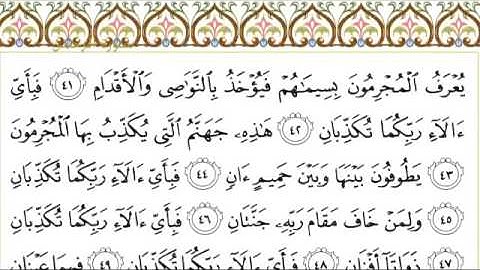 يُعۡرَفُ ٱلۡمُجۡرِمُونَ بِسِيمَٰهُمۡ فَيُؤۡخَذُ بِٱلنَّوَٰصِي وَٱلۡأَقۡدَامِ ٤١ فَبِأَيِّ
ءَالَآءِ رَبِّكُمَا تُكَذِّبَانِ ٤٢ هَٰذِهِۦ جَهَنَّمُ ٱلَّتِي يُكَذِّبُ بِهَا ٱلۡمُجۡرِمُونَ
٤٣ يَطُوفُونَ بَيۡنَهَا وَبَيۡنَ حَمِيمٍ ءَانٖ ٤٤ فَبِأَيِّ ءَالَآءِ رَبِّكُمَا تُكَذِّبَانِ
٤٥ وَلِمَنۡ خَافَ مَقَامَ رَبِّهِۦ جَنَّتَانِ ٤٦ فَبِأَيِّ ءَالَآءِ رَبِّكُمَا تُكَذِّبَانِ
٤٧ ذَوَاتَآ أَفۡنَانٖ ٤٨ فَبِأَيِّ ءَالَآءِ رَبِّكُمَا تُكَذِّبَانِ ٤٩ فِيهِمَا عَيۡنَانِ